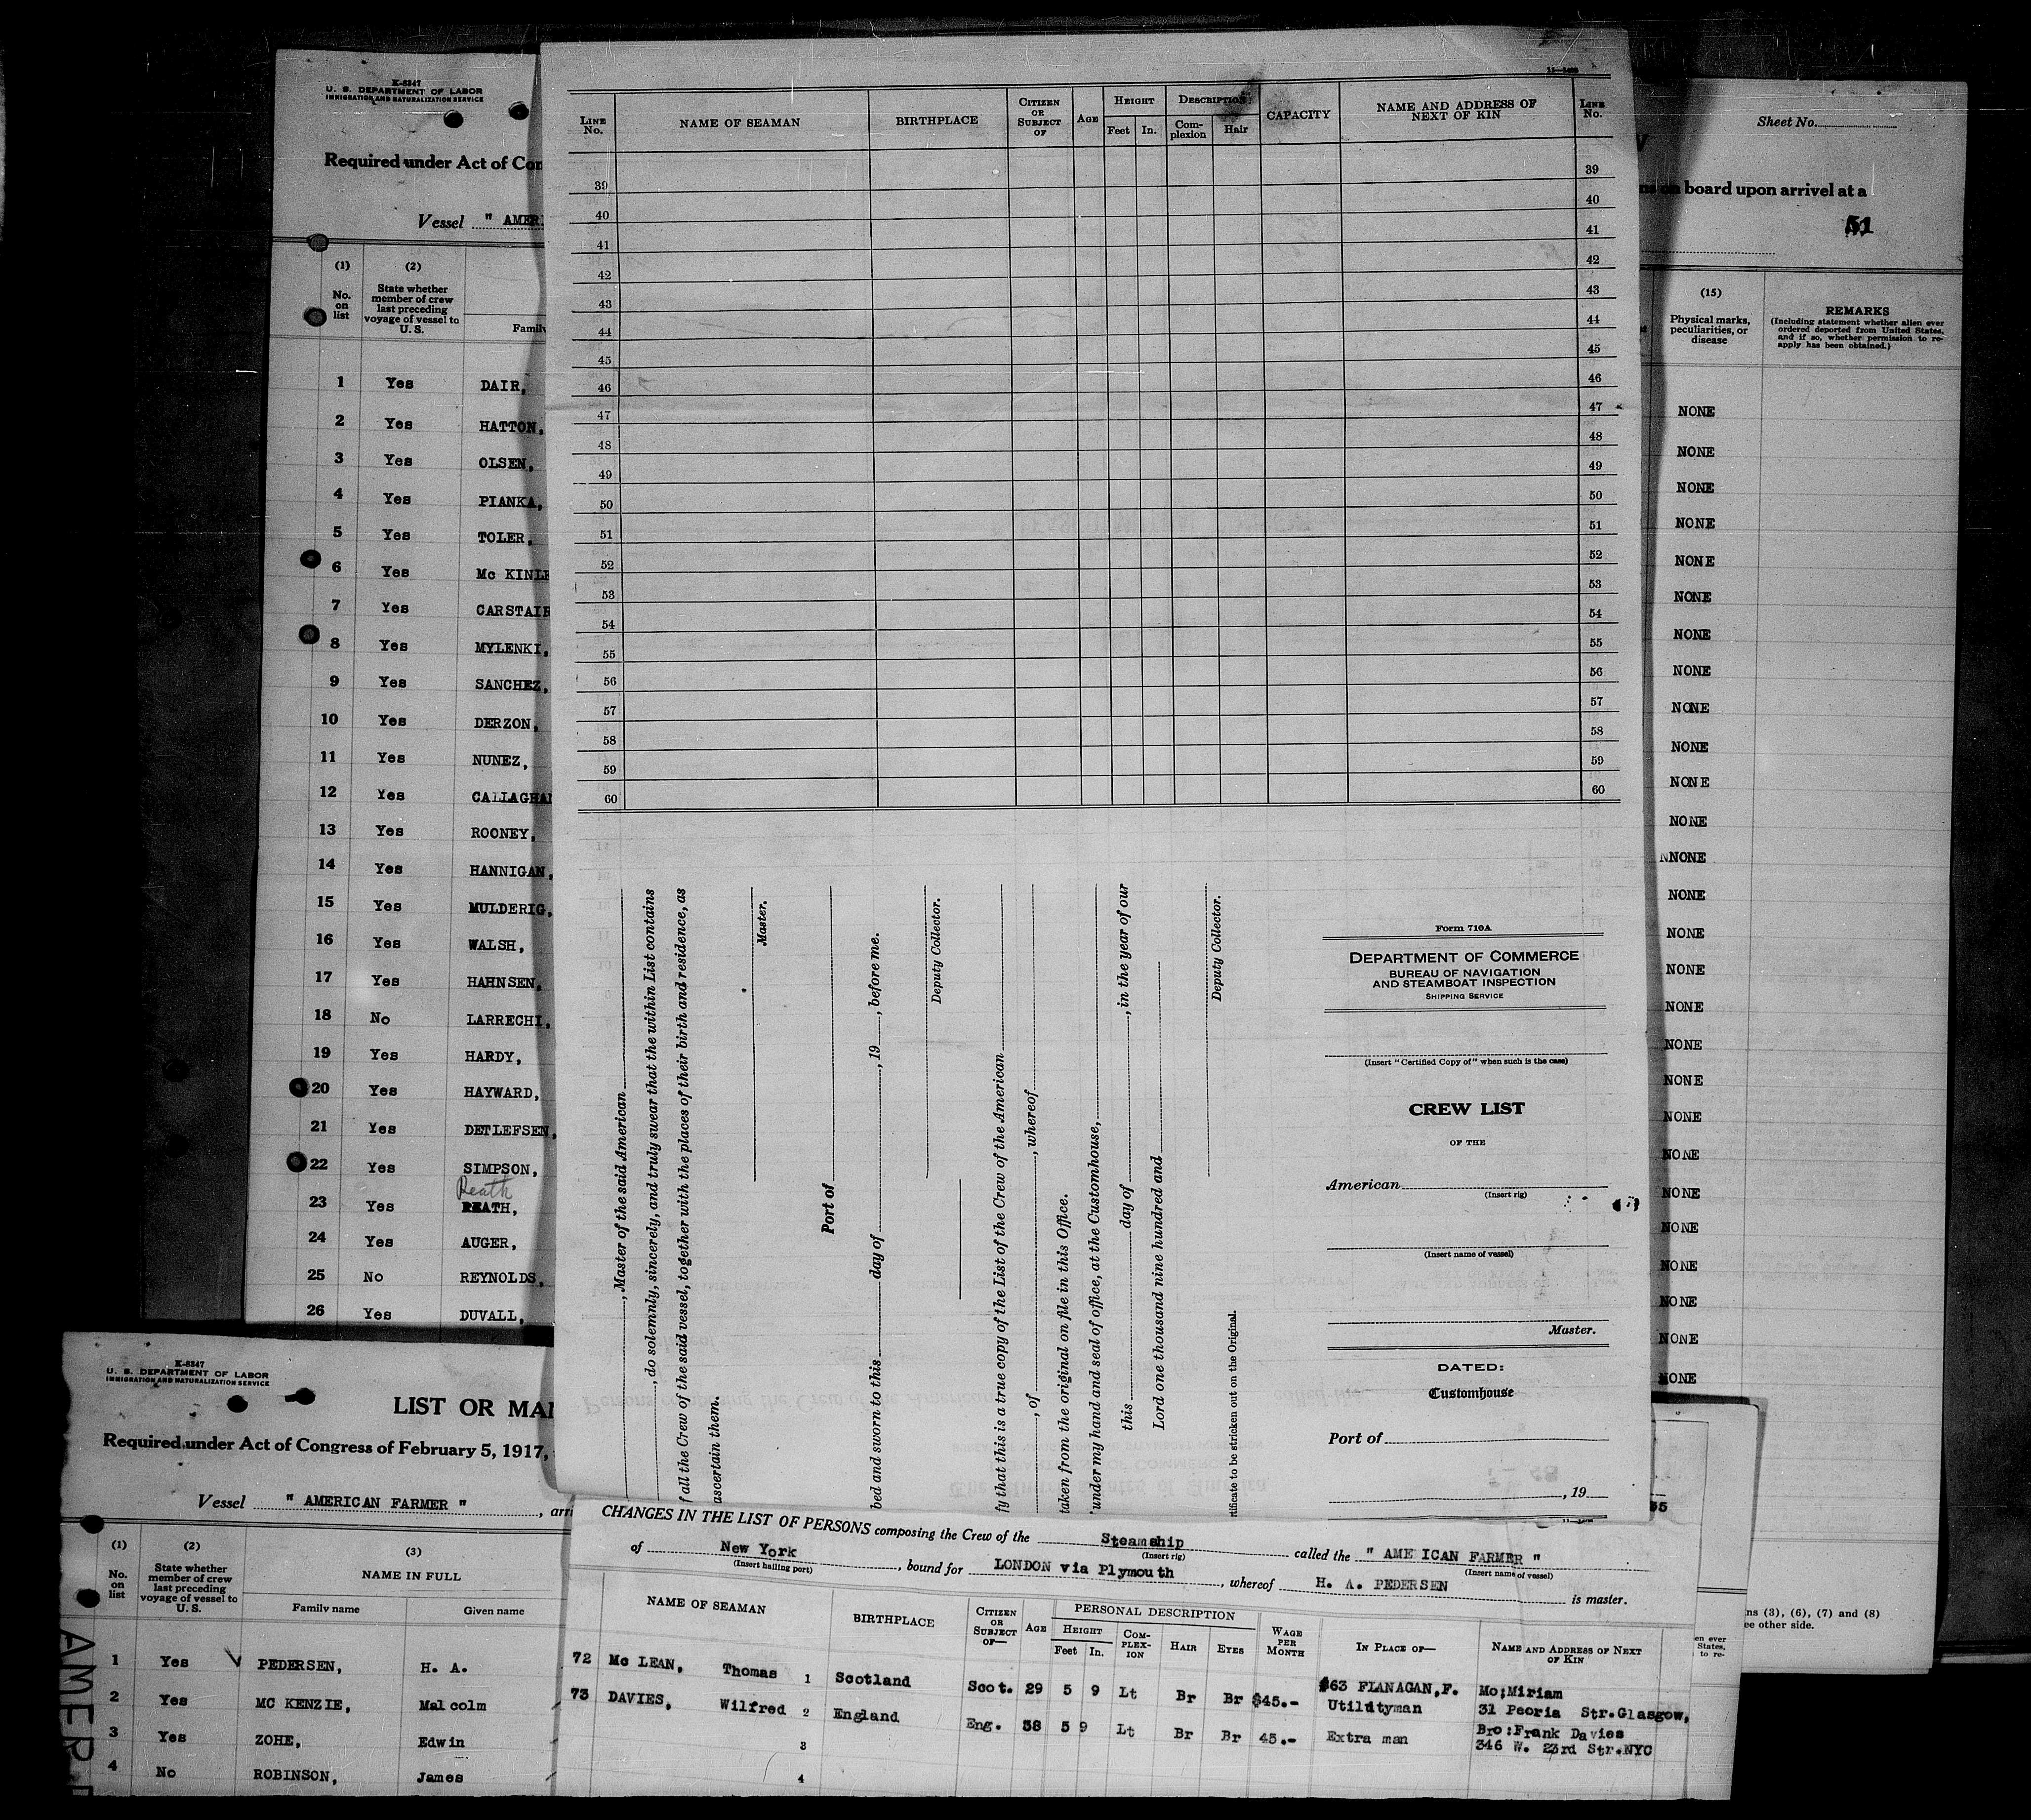 K-8347
U. S. DEPARTMENT OF LABOR
IMMIGRATION AND NATURALIZATION SERVICE
Required under Act of Con
Vessel " AMER
(1) (2)
No. on list
State whether member of crew last preceding voyage of vessel to U. S.
Family
1 Yes DAIR,
2 Yes HATTON,
3 Yes OLSEN,
4 Yes PIANKA,
5 Yes TOLER,
6 Yes Mc KINLE
7 Yes CARSTAIR
8 Yes MYLENKI,
9 Yes SANCHEZ,
10 Yes DERZON,
11 Yes NUNEZ,
12 Yes CALLAGHAN
13 Yes ROONEY,
14 Yes HANNIGAN,
15 Yes MULDERIG,
16 Yes WALSH,
17 Yes HAHNSEN,
18 No LARRECHI,
19 Yes HARDY,
20 Yes HAYWARD,
21 Yes DETLEFSEN,
22 Yes SIMPSON,
Reath
23 Yes REATH,
24 Yes AUGER,
25 No REYNOLDS,
26 Yes DUVALL,
LINE No.
NAME OF SEAMAN
BIRTHPLACE
CITIZEN OR SUBJECT OF
AGE
HEIGHT
Feet In.
DESCRIPTION
Complexion
Hair
CAPACITY
NAME AND ADDRESS OF NEXT OF KIN
LINE No.
39 39
40 40
41 41
42 42
43 43
44 44
45 45
46 46
47 47
48 48
49 49
50 50
51 51
52 52
53 53
54 54
55 55
56 56
57 57
58 58
59 59
60 60
, Master of the said American
, do solemnly, sincerely, and truly swear that the within List contains
f all the Crew of the said vessel, together with the places of their birth and residence, as
ascertain them.
Master.
Port of
bed and sworn to this day of , 19 , before me.
Deputy Collector.
fy that this is a true copy of the List of the Crew of the American
, of , whereof
taken from the original on file in this Office.
under my hand and seal of office, at the Customhouse,
this day of , in the year of our
Lord one thousand nine hundred and
Deputy Collector.
rtificate to be stricken out on the Original.
Form 710A
DEPARTMENT OF COMMERCE
BUREAU OF NAVIGATION
AND STEAMBOAT INSPECTION
SHIPPING SERVICE
(Insert "Certified Copy of" when such is the case)
CREW LIST
OF THE
American
(Insert rig)
(Insert name of vessel)
Master.
DATED:
Customhouse
Port of
, 19
Sheet No.
on board upon arrivel at a
51
(15)
Physical marks, peculiarities, or disease
REMARKS
(Including statement whether alien ever ordered deported from United States, and if so, whether permission to re-apply has been obtained.)
NONE
NONE
NONE
NONE
NONE
NONE
NONE
NONE
NONE
NONE
NONE
NONE
NNONE
NONE
NONE
NONE
NONE
NONE
NONE
NONE
NONE
NONE
NONE
NONE
NONE
NONE
NONE
ns (3), (6), (7) and (8)
ee other side.
en ever
States,
to re-
K-8347
U. S. DEPARTMENT OF LABOR
IMMIGRATION AND NATURALIZATION SERVICE
LIST OR MAN
Required under Act of Congress of February 5, 1917,
Vessel " AMERICAN FARMER " , arri
(1) (2) (3)
No. on list
State whether member of crew last preceding voyage of vessel to U. S.
NAME IN FULL
Family name Given name
1 Yes PEDERSEN, H. A.
2 Yes MC KENZIE, Malcolm
3 Yes ZOHE, Edwin
4 No ROBINSON, James
AMER
CHANGES IN THE LIST OF PERSONS composing the Crew of the Steamship called the " AME ICAN FARMER "
(Insert rig) (Insert name of vessel)
of New York , bound for LONDON via Plymouth , whereof H. A. PEDERSEN is master.
(Insert hailing port)
NAME OF SEAMAN
BIRTHPLACE
CITIZEN OR SUBJECT OF—
AGE
PERSONAL DESCRIPTION
HEIGHT
Feet In.
COM-PLEX-ION
HAIR
EYES
WAGE PER MONTH
IN PLACE OF—
NAME AND ADDRESS OF NEXT OF KIN
72 Mc LEAN, Thomas 1 Scotland Scot. 29 5 9 Lt Br Br $45.- #63 FLANAGAN,F. Mo;Miriam
Utilityman 31 Peoria Str.Glasgow,
73 DAVIES, Wilfred 2 England Eng. 38 5 9 Lt Br Br 45.- Extra man Bro:Frank Davies
346 W. 23rd Str.NYC
3
4